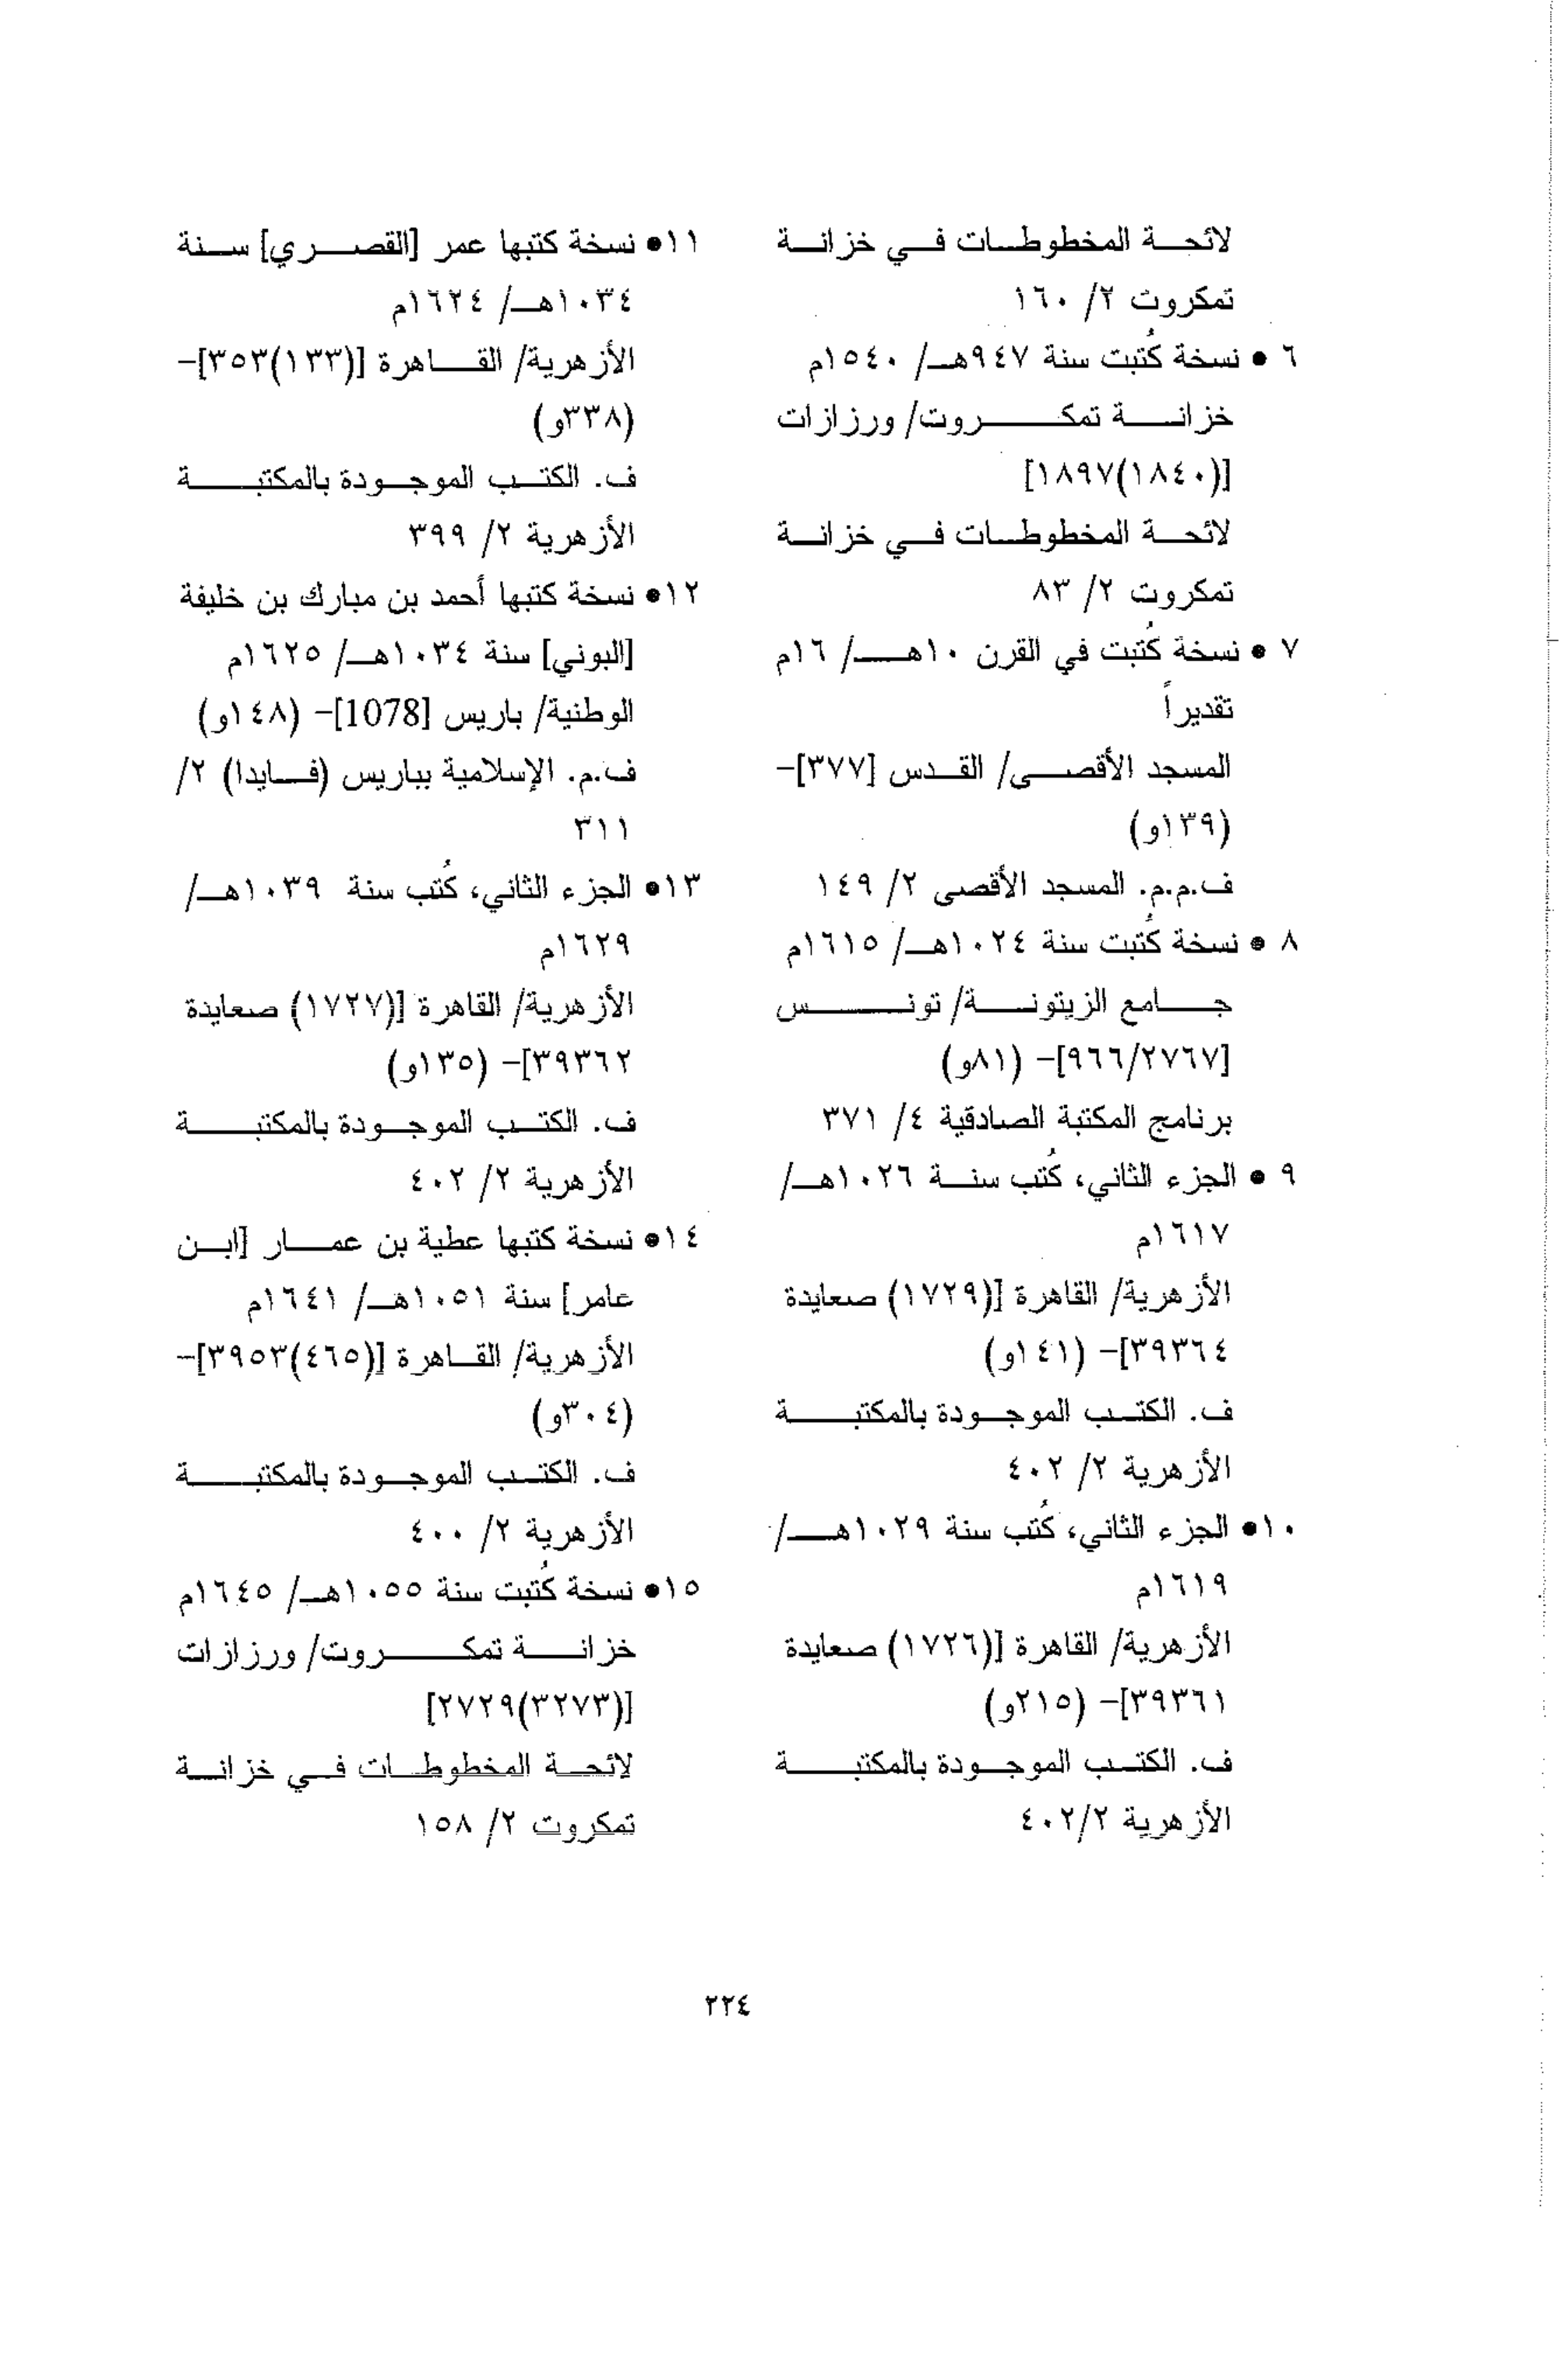 لائحة المخطوطات في خزانة
تمكروت ٢/ ١٦٠
٦ • نسخة كُتبت سنة ٩٤٧هـ/ ١٥٤٠م
خزانة تمكروت/ ورزازات
[(١٨٤٠)١٨٩٧]
لائحة المخطوطات في خزانة
تمكروت ٢/ ٨٣
٧ • نسخة كُتبت في القرن ١٠هـ/ ١٦م
تقديراً
المسجد الأقصى/ القدس [٣٧٧]-
(١٣٩و)
ف.م.م. المسجد الأقصى ٢/ ١٤٩
٨ • نسخة كُتبت سنة ١٠٢٤هـ/ ١٦١٥م
جامع الزيتونة/ تونس
[٩٦٦/٢٧٦٧]- (٨١و)
برنامج المكتبة الصادقية ٤/ ٣٧١
٩ • الجزء الثاني، كُتب سنة ١٠٢٦هـ/
١٦١٧م
الأزهرية/ القاهرة [(١٧٢٩) صعايدة
٣٩٣٦٤]- (١٤١و)
ف. الكتب الموجودة بالمكتبة
الأزهرية ٢/ ٤٠٢
١٠• الجزء الثاني، كُتب سنة ١٠٢٩هـ/
١٦١٩م
الأزهرية/ القاهرة [(١٧٢٦) صعايدة
٣٩٣٦١]- (٢١٥و)
ف. الكتب الموجودة بالمكتبة
الأزهرية ٤٠٢/٢
١١• نسخة كتبها عمر [القصري] سنة
١٠٣٤هـ/ ١٦٢٤م
الأزهرية/ القاهرة [(١٣٣)٣٥٣]-
(٣٣٨و)
ف. الكتب الموجودة بالمكتبة
الأزهرية ٢/ ٣٩٩
١٢• نسخة كتبها أحمد بن مبارك بن خليفة
[البوني] سنة ١٠٣٤هـ/ ١٦٢٥م
الوطنية/ باريس [1078]- (١٤٨و)
ف.م. الإسلامية بباريس (فايدا) ٢/
٣١١
١٣• الجزء الثاني، كُتب سنة ١٠٣٩هـ/
١٦٢٩م
الأزهرية/ القاهرة [(١٧٢٧) صعايدة
٣٩٣٦٢]- (١٣٥و)
ف. الكتب الموجودة بالمكتبة
الأزهرية ٢/ ٤٠٢
١٤• نسخة كتبها عطية بن عمار [ابن
عامر] سنة ١٠٥١هـ/ ١٦٤١م
الأزهرية/ القاهرة [(٤٦٥)٣٩٥٣]-
(٣٠٤و)
ف. الكتب الموجودة بالمكتبة
الأزهرية ٢/ ٤٠٠
١٥• نسخة كُتبت سنة ١٠٥٥هـ/ ١٦٤٥م
خزانة تمكروت/ ورزازات
[(٣٢٧٣)٢٧٢٩]
لائحة المخطوطات في خزانة
تمكروت ٢/ ١٥٨
٢٢٤